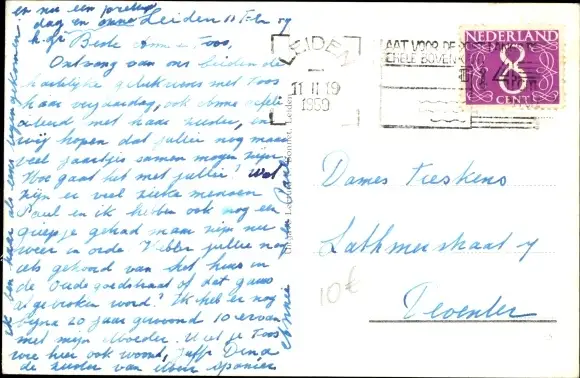 en nu een prettige
dag en Leiden 11 Febr 59
Beste Annie Toos,
Ontvang van ons beiden de
hartelijke gelukwensen met Toos
haar verjaardag, ook Annie
met haar zuster, en
wij hopen dat jullie nog maar
veel jaartjes samen mogen zijn
Hoe gaat het met jullie? Wat
zijn er veel zieke mensen
Paul en ik hebben ook nog een
griepje gehad maar zijn nu
weer in orde. Hebben jullie nog
iets gehoord van het huis in
de of dat gauw
afgebroken word? Ik heb er nog
bijna 20 jaar gewoond 10 ervan
met mijn Moeder. Weet je Toos
wie hier ook woond, Juffr Dina
de zuster van
Annie en Paul
LEIDEN
11 II 19
1959
NEDERLAND
8
CENT
Dames Tieskens
Lathmerstraat 7
Deventer
10€